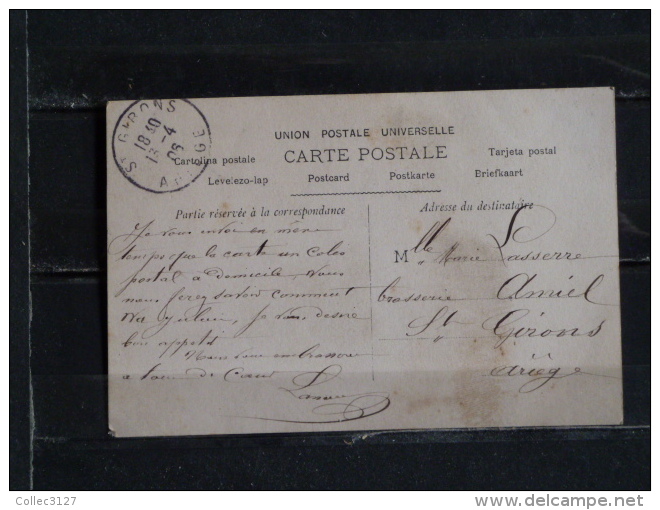 ST GIRONS
18 30
13 -4
08
ARIEGE
UNION POSTALE UNIVERSELLE
Cartolina postale CARTE POSTALE Tarjeta postal
Levelezo-lap Postcard Postkarte Briefkaart
Partie réservée à la correspondance
Je vous envoi en même
temps que la carte un colis
postal à domicile, vous
nous ferez savoir comment
Je vous désire
bon appetit
Nous vous embrassons
de Cœur
Adresse du destinataire
Mlle Marie Lasserre
brasserie Amiel
St Girons
Ariège
Collec3127
delcampe.net